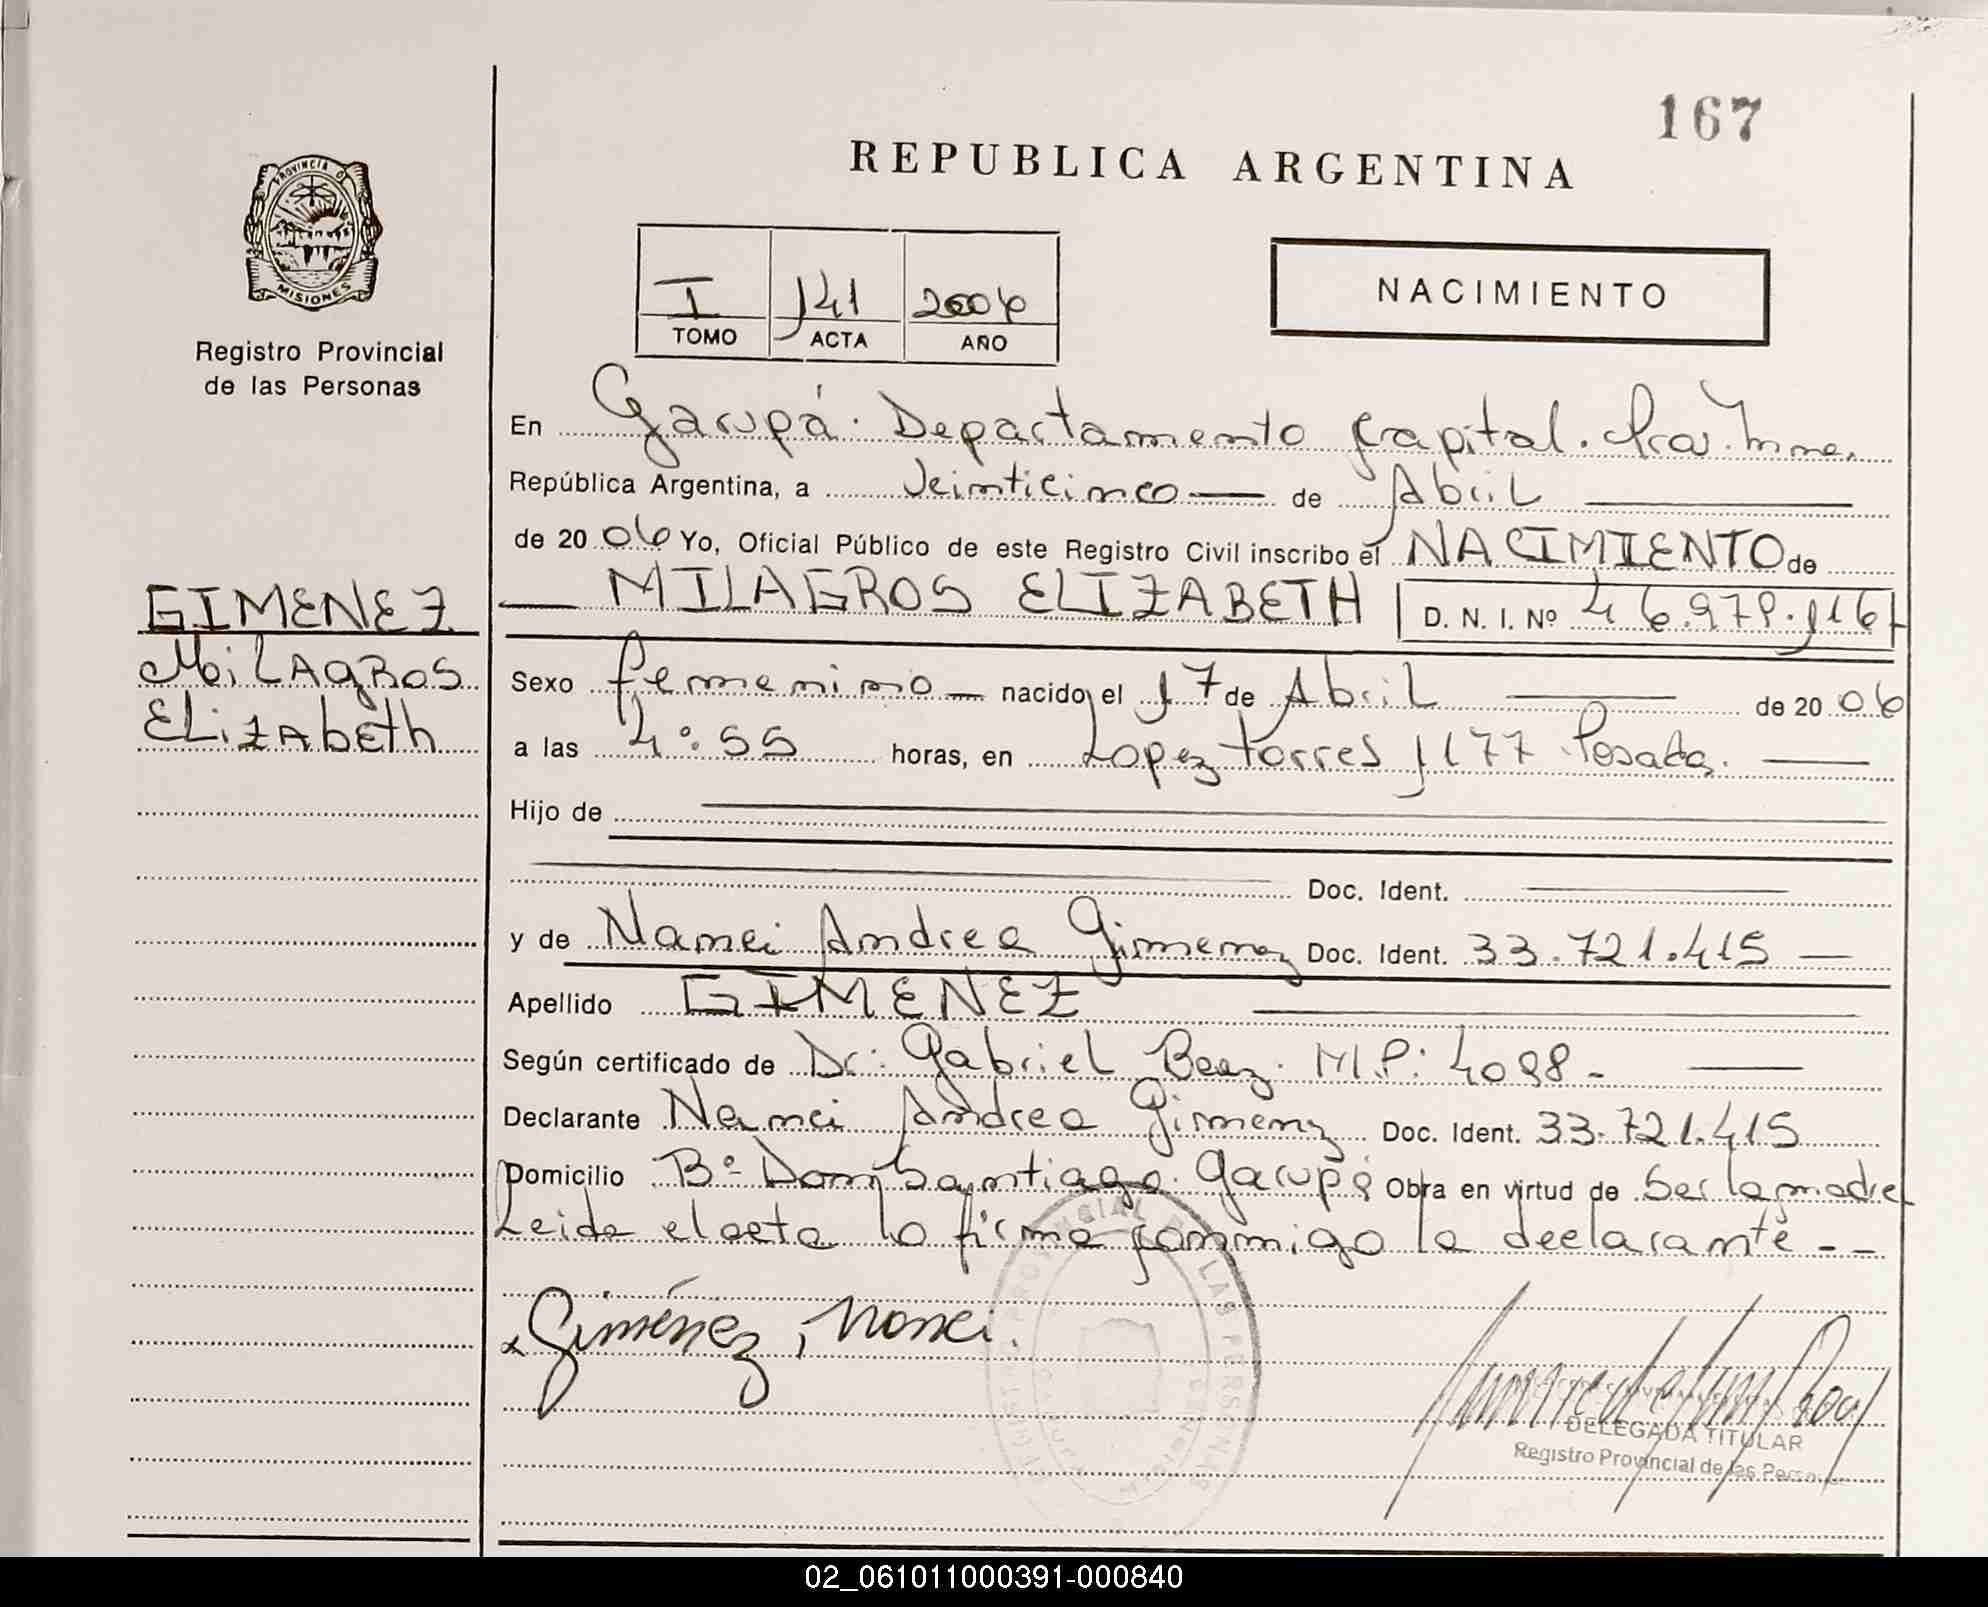 167
REPUBLICA ARGENTINA
PROVINCIA D
MISIONES
Registro Provincial
de las Personas
I 141 2006
TOMO ACTA AÑO
NACIMIENTO
En Garupá. Departamento Capital.
República Argentina, a Veinticinco de Abril
de 20 06 Yo, Oficial Público de este Registro Civil inscribo el NACIMIENTO de
MILAGROS ELIZABETH D. N. I. Nº
GIMENEZ
MiLAgRos
ELizAbeth
Sexo femenino nacido el 17 de Abril de 20 06
a las 4:55 horas, en Lopez Torres 1177 Posadas.
Hijo de
Doc. Ident.
y de Nanci Andrea Gimenez Doc. Ident. 33.721.415
Apellido GIMENEZ
Según certificado de Dr: Gabriel Baez. M.P: 4098-
Declarante Nanci Andrea Gimenez Doc. Ident. 33.721.415
Domicilio Bº Don Santiago. Garupá Obra en virtud de Ser la madre
Leida el acta la firma conmigo la declarante - -
x Giménez, Nanci.
DELEGADA TITULAR
Registro Provincial de las Personas
02_061011000391-000840